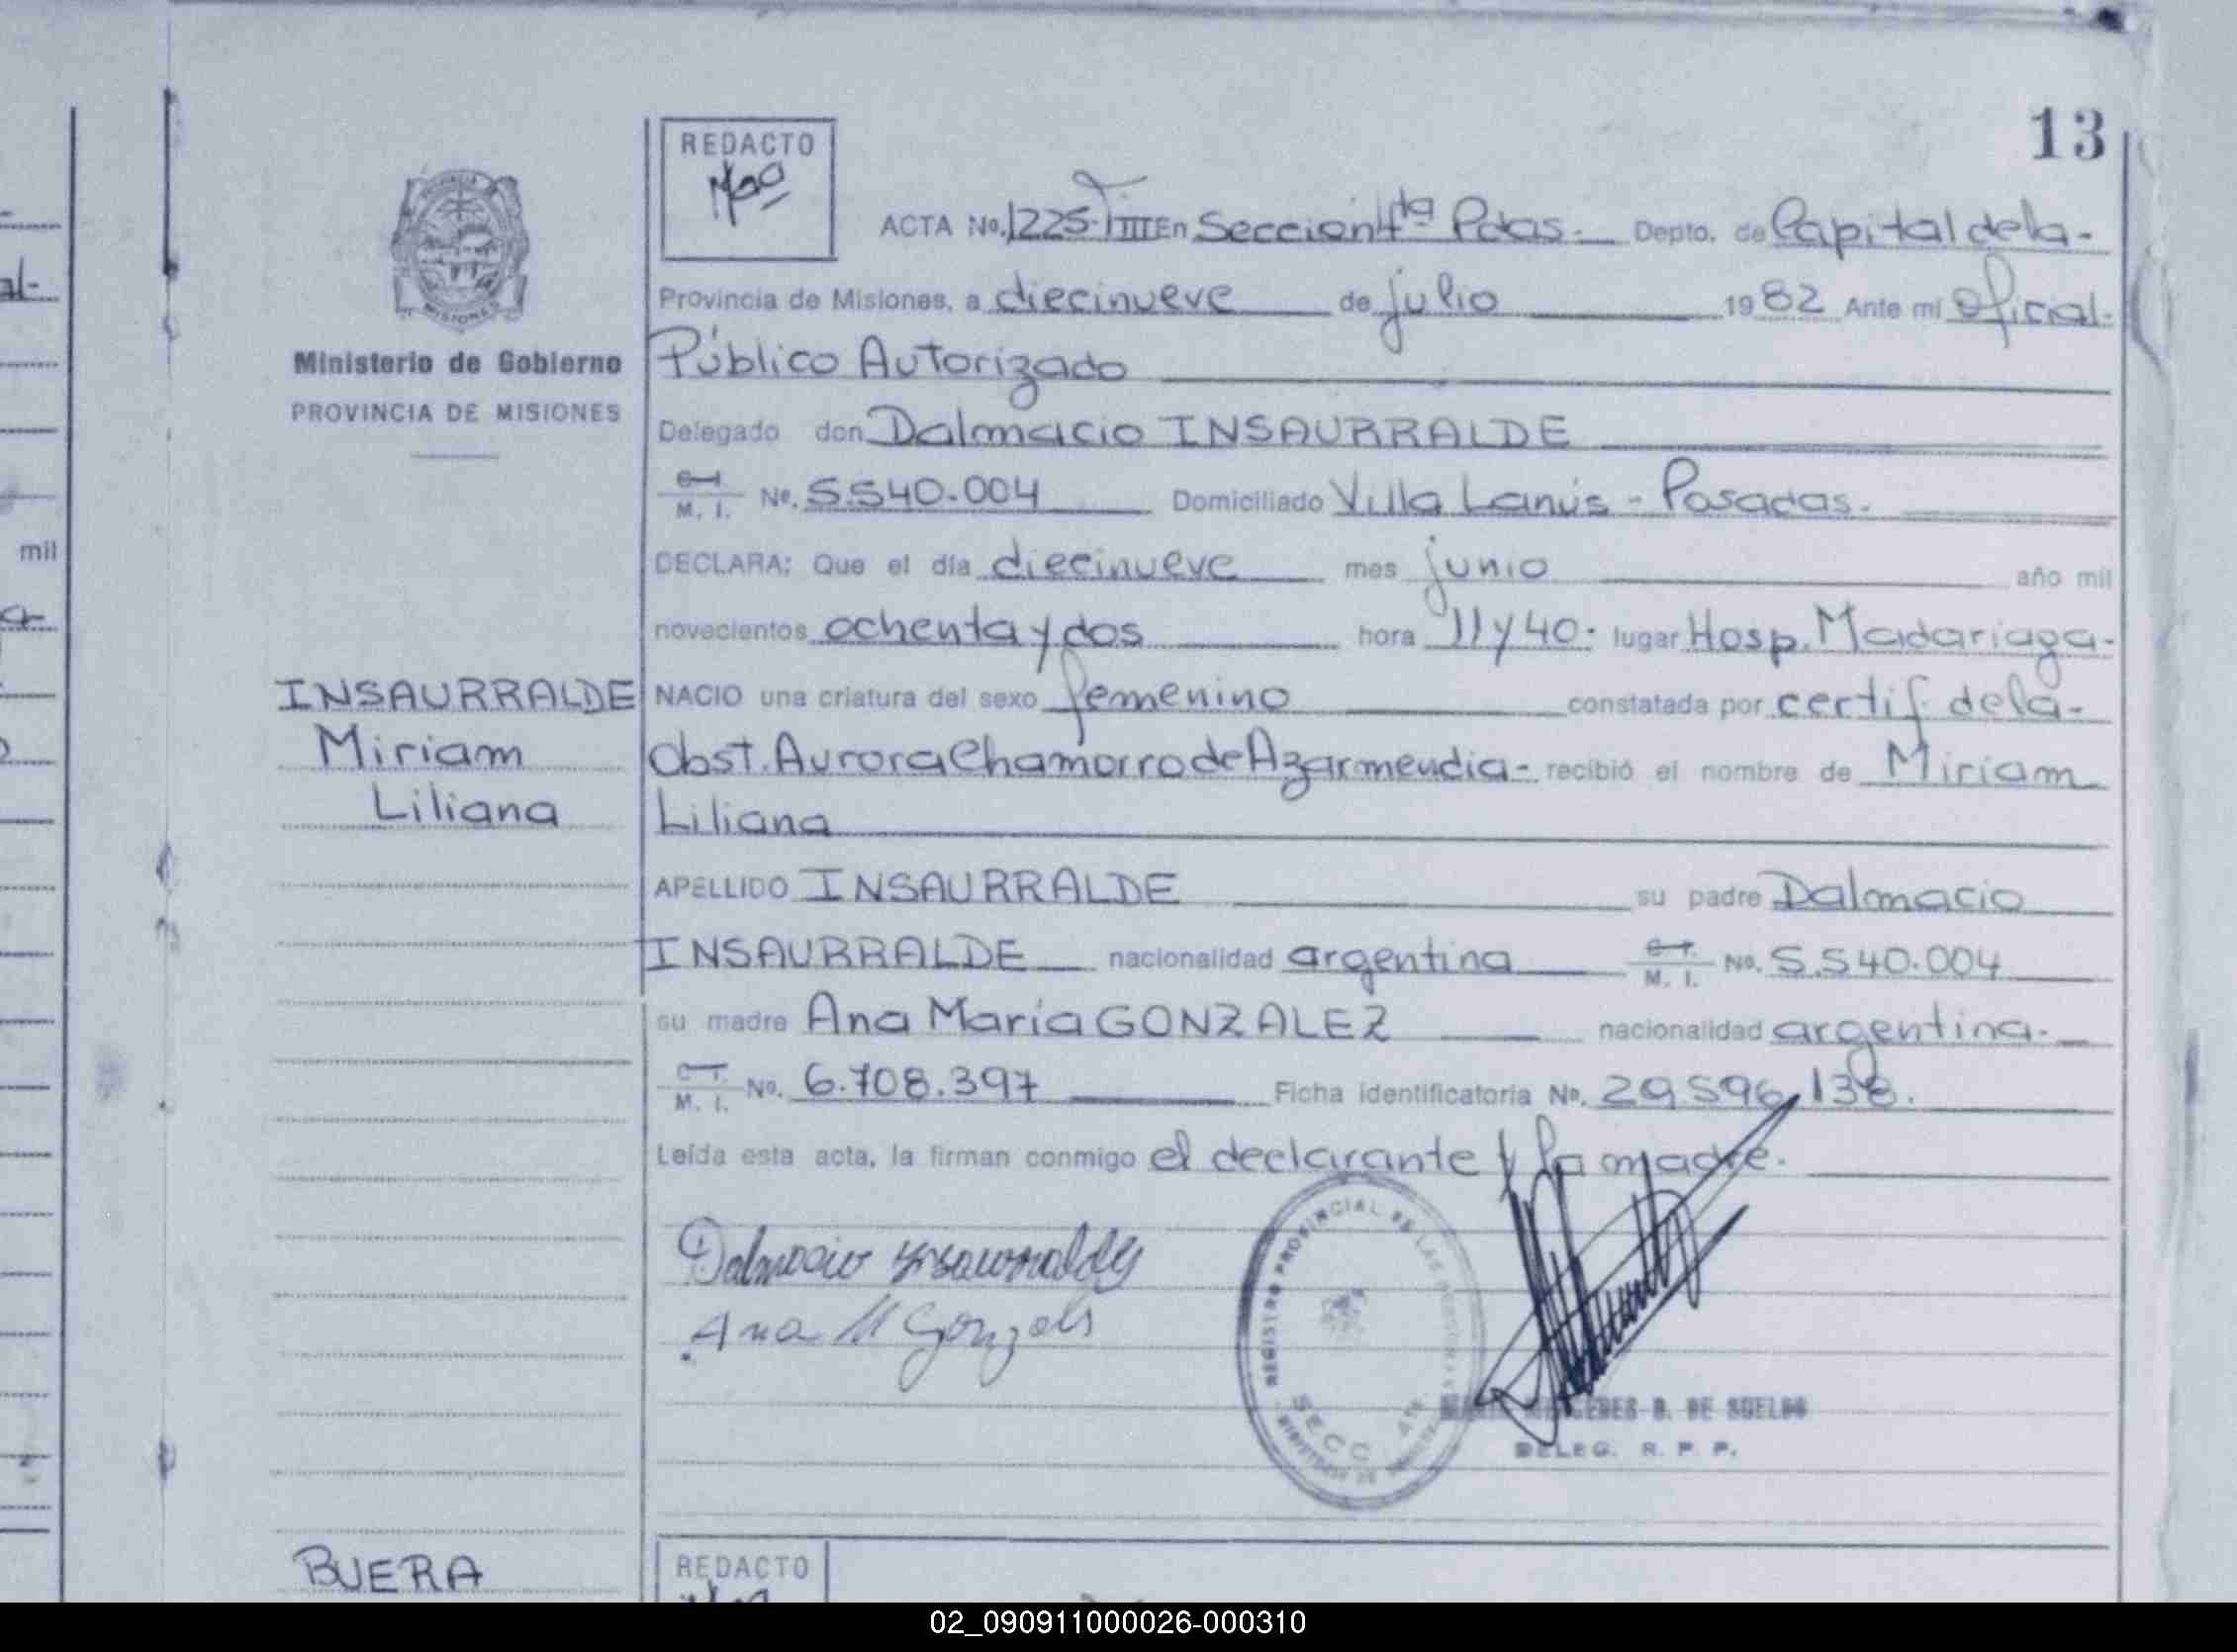 13
REDACTO
ACTA No. 1225-TIII En Sección 4ta Pdas.- Depto. de Capital de la-
Provincia de Misiones, a diecinueve de julio 1982 Ante mi Oficial-
Ministerio de Gobierno
Público Autorizado
PROVINCIA DE MISIONES
Delegado don Dalmacio INSAURRALDE
M. I. No. 5.540.004 Domiciliado Villa Lanús - Posadas.
DECLARA: Que el día diecinueve mes junio año mil
novecientos ochenta y dos hora 11 y 40. lugar Hosp. Madariaga-
INSAURRALDE
Miriam
Liliana
NACIO una criatura del sexo femenino constatada por certif de la-
Obst. Aurora Chamorro de Azarmendia- recibió el nombre de Miriam
Liliana
APELLIDO INSAURRALDE su padre Dalmacio
INSAURRALDE nacionalidad argentina C. I. M. I. No. 5.540.004
su madre Ana María GONZALEZ nacionalidad argentina.-
C. I. M. I. No. 6.708.397 Ficha identificatoria No. 29.596.138.
Leída esta acta, la firman conmigo el declarante y la madre.
Dalmacio Insaurralde
Ana M Gonzalez
REGISTRO PROVINCIAL DE LAS PERSONAS
SECC. 4ta.
MERCEDES B. DE SUELDO
DELEG. R. P. P.
BUERA
REDACTO
al-
mil
02_090911000026-000310